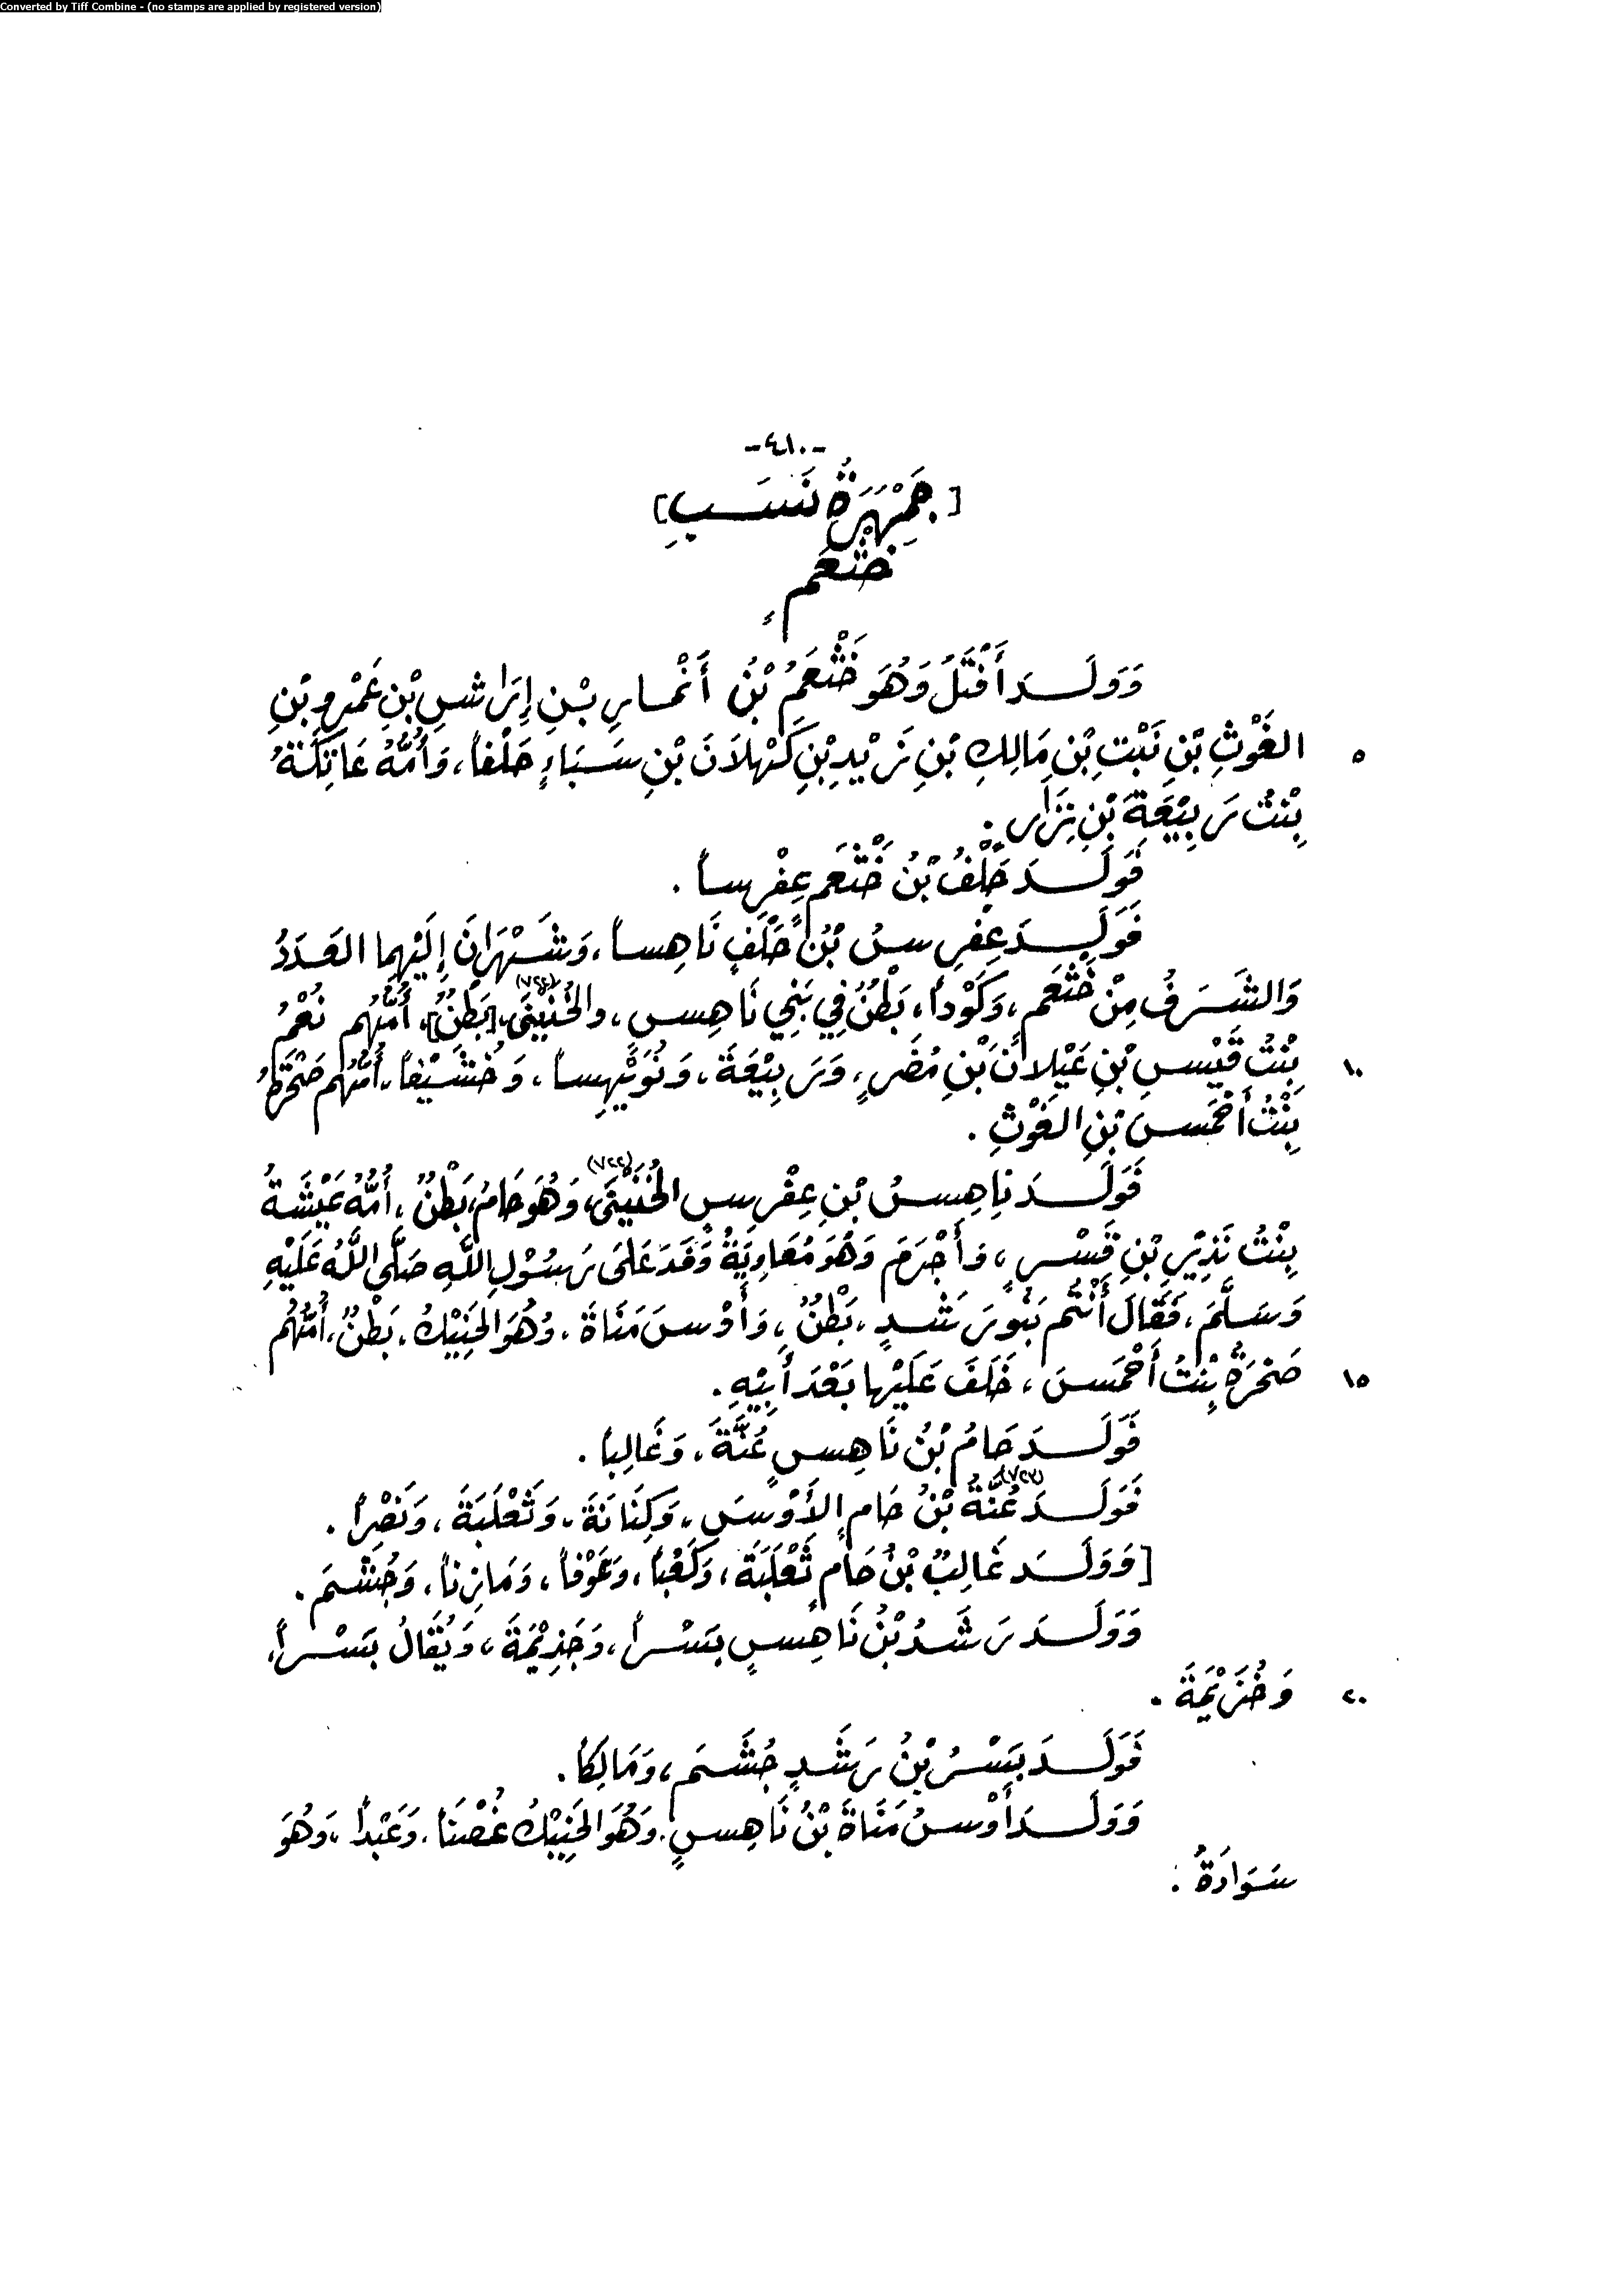 Converted by Tiff Combine - (no stamps are applied by registered version)
-٤١٠-
[جَمْهَرَةُ نَسَبِ]
خَثْعَمٍ
وَوَلَـدَ أَفْتَلُ وَهُوَ خَثْعَمُ بْنُ أَنْمَارِ بْنِ إِرَاشِ بْنِ عَمْرِو بْنِ
٥ الغَوْثِ بْنِ نَبْتِ بْنِ مَالِكِ بْنِ زَيْدِ بْنِ كَهْلاَنَ بْنِ سَبَاءٍ حَلْفاً، وَأُمُّهُ عَاتِكَةُ
بِنْتُ رَبِيْعَةَ بْنِ نِزَارٍ.
فَوَلَـدَ حَلْفُ بْنُ خَثْعَمٍ عِفْرِساً.
فَوَلَـدَ عِفْرِسُ بْنُ حَلْفٍ نَاهِساً، وَشَهْرَانَ إِلَيْهِما العَدَدُ
وَالشَّرَفُ مِنْ خَثْعَمٍ، وَكَوْداً، بَطْنٌ فِي بَنِي نَاهِسٍ، والخُنَيْنَى،(٧٢٤) [بَطْنٌ]، أُمُّهُم نُعْمُ
١٠ بِنْتُ قَيْسِ بْنِ عَيْلاَنَ بْنِ مُضَرٍ، وَرَبِيْعَةَ، وَنُوَيْهِساً، وَخُشَيْعاً، أُمُّهُم صَخْرَةُ
بِنْتُ أَحْمَسَ بْنِ الغَوْثِ.
فَوَلَـدَ نَاهِسُ بْنِ عِفْرِسِ الخُنَيْنَى،(٧٢٢) وَهُوَ حَامُ، بَطْنٌ، أُمُّهُ عَيْشَةُ
بِنْتُ نَذِيْرِ بْنِ قَسْرٍ، وَأَجْرَمَ وَهُوَ مُعَاوِيَةُ وَفَدَ عَلَى رَسُوْلِ اللَّهِ صَلَّى اللَّهُ عَلَيْهِ
وَسَلَّمَ، فَقَالَ أَنْتُم بَنُو رَشَدٍ، بَطْنٌ، وَأَوْسَ مَنَاةَ، وَهُوَ الحَنِيْكُ، بَطْنٌ، أُمُّهُم
١٥ صَخْرَةُ بِنْتُ أَحْمَسَ، خَلَفَ عَلَيْها بَعْدَ أَبِيْهِ.
فَوَلَـدَ حَامُ بْنُ نَاهِسٍ عُنَّةَ، وَغَالِباً.
فَوَلَـدَ عُنَّةُ(٧٢٧) بْنُ حَامٍ الأَوْسَ، وَكِنَانَةَ، وَثَعْلَبَةَ، وَنَصْراً.
[وَوَلَـدَ غَالِبُ بْنُ حَامٍ ثَعْلَبَةَ، وَكَعْباً، وَعَوْفاً، وَمَازِناً، وَجُشَمَ.
وَوَلَـدَ رَشَدُ بْنُ نَاهِسٍ بَسْراً، وَجَذِيْمَةَ، وَيُقَالُ بَسْراً،
٢٠ وَخُزَيْمَةَ.
فَوَلَـدَ بَسْرُ بْنُ رَشَدٍ جُشَمَ، وَمَالِكاً.
وَوَلَـدَ أَوْسُ مَنَاةَ بْنُ نَاهِسٍ. وَهُوَ الحَنِيْكُ غُصْناً، وَعَبْداً، وَهُوَ
سَوَادَةُ.